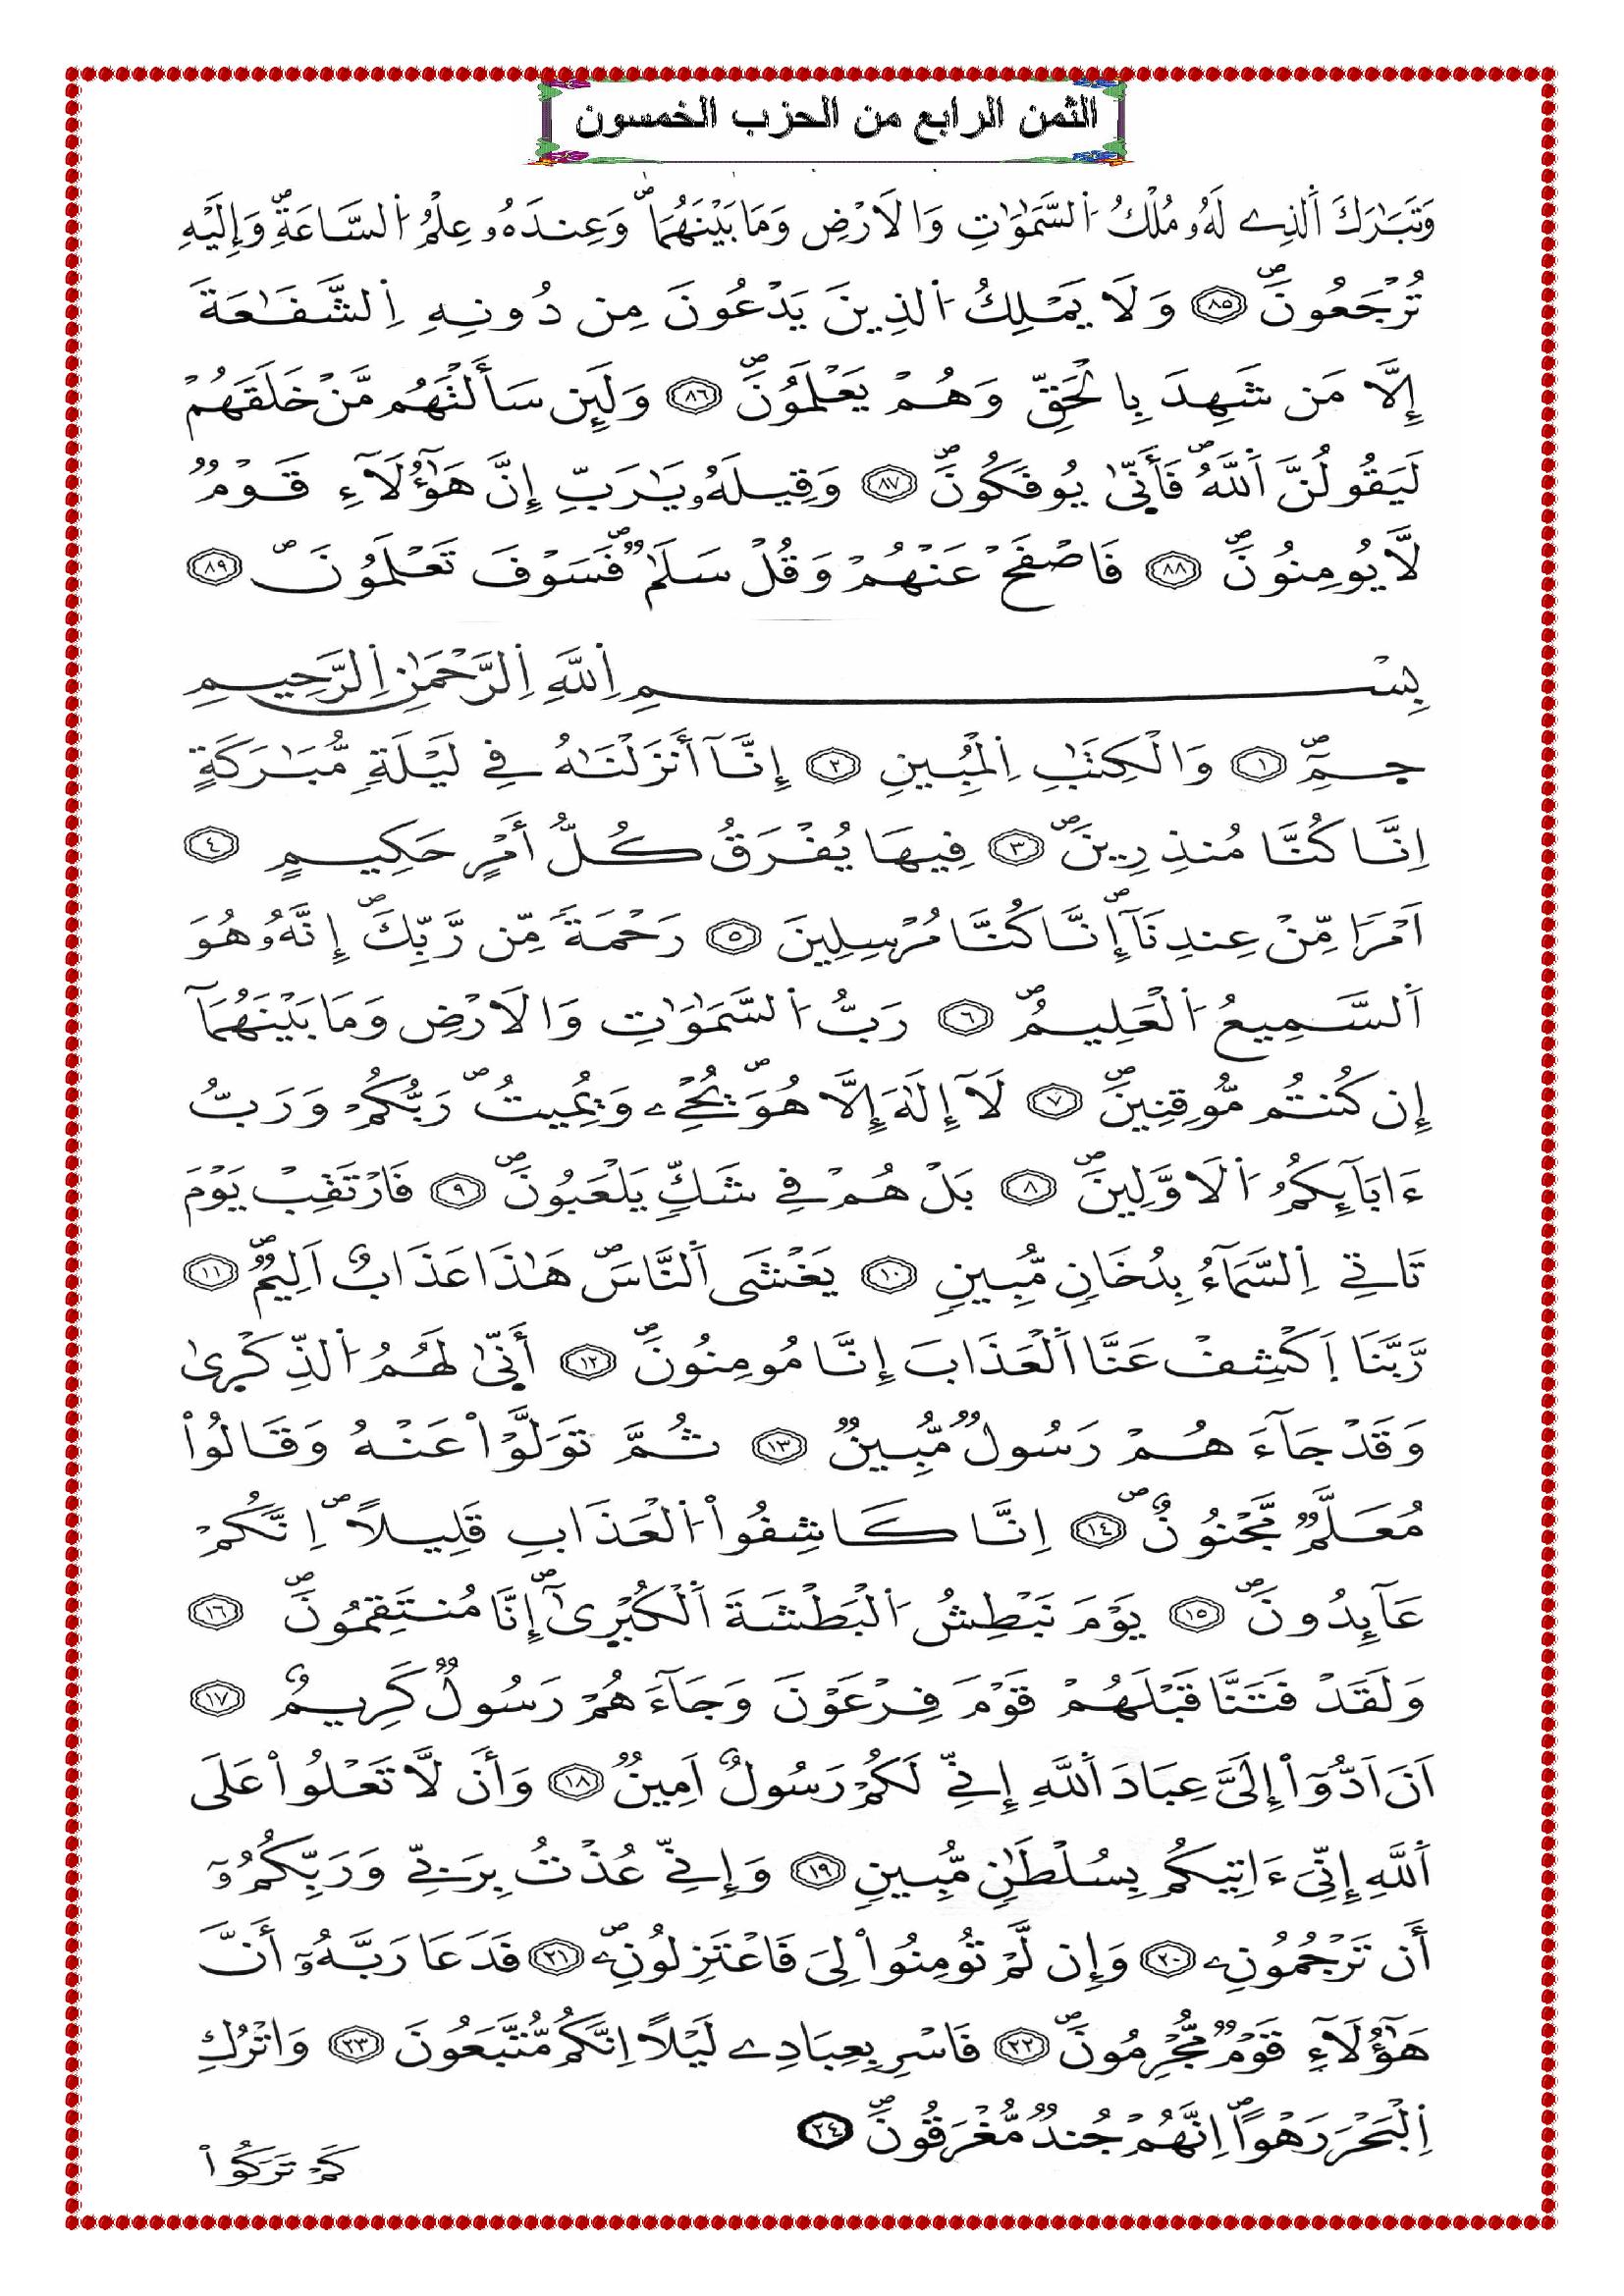 الثمن الرابع من الحزب الخمسون
وَتَبَٰرَكَ اَ۬لذِے لَهُۥ مُلْكُ اُ۬لسَّمَٰوَٰتِ وَالَارْضِ وَمَا بَيْنَهُمَاۖ وَعِندَهُۥ عِلْمُ اُ۬لسَّاعَةِۖ وَإِلَيْهِ
تُرْجَعُونَۖ ٨٥ وَلَا يَمْلِكُ اُ۬لذِينَ يَدْعُونَ مِن دُونِهِ اِ۬لشَّفَٰعَةَ
إِلَّا مَن شَهِدَ بِالْحَقِّ وَهُمْ يَعْلَمُونَۖ ٨٦ وَلَئِن سَأَلْتَهُم مَّنْ خَلَقَهُمْ
لَيَقُولُنَّ اَ۬للَّهُۖ فَأَنّ۪يٰ يُوفَكُونَۖ ٨٧ وَقِيلَهُۥ يَٰرَبِّ إِنَّ هَٰٓؤُلَآءِ قَوْمٌ
لَّا يُومِنُونَۖ ٨٨ فَاصْفَحْ عَنْهُمْ وَقُلْ سَلَٰمٌۖ فَسَوْفَ تَعْلَمُونَۖ ٨٩
بِسْمِ اِ۬للَّهِ اِ۬لرَّحْمَٰنِ اِ۬لرَّحِيمِ
ح۪مِٓۖ ١ وَالْكِتَٰبِ اِ۬لْمُبِينِ ٢ إِنَّآ أَنزَلْنَٰهُ فِے لَيْلَةٖ مُّبَٰرَكَةٍ
اِنَّا كُنَّا مُنذِرِينَۖ ٣ فِيهَا يُفْرَقُ كُلُّ أَمْرٍ حَكِيمٍ ٤
اَمْراٗ مِّنْ عِندِنَآۖ إِنَّا كُنَّا مُرْسِلِينَ ٥ رَحْمَةٗ مِّن رَّبِّكَۖ إِنَّهُۥ هُوَ
اَ۬لسَّمِيعُ اُ۬لْعَلِيمُۖ ٦ رَبُّ اُ۬لسَّمَٰوَٰتِ وَالَارْضِ وَمَا بَيْنَهُمَآ
إِن كُنتُم مُّوقِنِينَۖ ٧ لَآ إِلَٰهَ إِلَّا هُوَۖ يُحْيِۦ وَيُمِيتُۖ رَبُّكُمْ وَرَبُّ
ءَابَآئِكُمُ اُ۬لَاوَّلِينَۖ ٨ بَلْ هُمْ فِے شَكّٖ يَلْعَبُونَۖ ٩ فَارْتَقِبْ يَوْمَ
تَاتِے اِ۬لسَّمَآءُ بِدُخَانٖ مُّبِينٖ ١٠ يَغْشَي اَ۬لنَّاسَۖ هَٰذَا عَذَابٌ اَلِيمٌۖ ١١
رَّبَّنَا اَ۪كْشِفْ عَنَّا اَ۬لْعَذَابَ إِنَّا مُومِنُونَۖ ١٢ أَنّ۪يٰ لَهُمُ اُ۬لذِّكْر۪يٰ
وَقَدْ جَآءَهُمْ رَسُولٌ مُّبِينٌ ١٣ ثُمَّ تَوَلَّوْاْ عَنْهُ وَقَالُواْ
مُعَلَّمٌ مَّجْنُونٌۖ ١٤ اِنَّا كَاشِفُواْ اُ۬لْعَذَابِ قَلِيلاًۖ اِنَّكُمْ
عَآئِدُونَۖ ١٥ يَوْمَ نَبْطِشُ اُ۬لْبَطْشَةَ اَ۬لْكُبْر۪يٰٓۖ إِنَّا مُنتَقِمُونَۖ ١٦
وَلَقَدْ فَتَنَّا قَبْلَهُمْ قَوْمَ فِرْعَوْنَ وَجَآءَهُمْ رَسُولٌ كَرِيمٌ ١٧
اَنَ اَدُّوٓاْ إِلَيَّ عِبَادَ اَ۬للَّهِ إِنِّے لَكُمْ رَسُولٌ اَمِينٌ ١٨ وَأَن لَّا تَعْلُواْ عَلَي
اَ۬للَّهِ إِنِّيَ ءَاتِيكُم بِسُلْطَٰنٖ مُّبِينٖ ١٩ وَإِنِّے عُذْتُ بِرَبِّے وَرَبِّكُمُۥٓ
أَن تَرْجُمُونِۦ ٢٠ وَإِن لَّمْ تُومِنُواْ لِيَ فَاعْتَزِلُونِۦۖ ٢١ فَدَعَا رَبَّهُۥٓ أَنَّ
هَٰٓؤُلَآءِ قَوْمٌ مُّجْرِمُونَۖ ٢٢ فَاسْرِ بِعِبَادِے لَيْلاً اِنَّكُم مُّتَّبَعُونَ ٢٣ وَاتْرُكِ
اِ۬لْبَحْرَ رَهْواًۖ اِنَّهُمْ جُندٌ مُّغْرَقُونَۖ ٢٤
كَمْ تَرَكُواْ